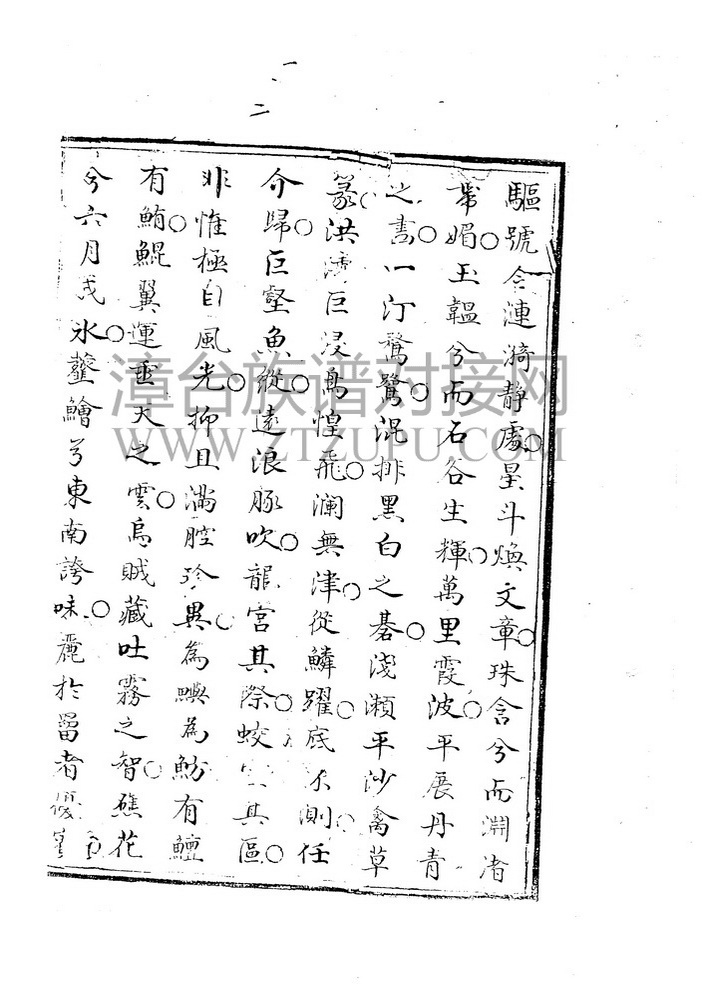 驅號令漣漪靜處星斗煥文章珠含兮而淵渚
帶媚玉韞兮而石谷生輝萬里霞波平展丹青
之書一汀鶩鷺混排黑白之碁淺瀨平沙禽草
篆洪濤巨浸鳥惶飛瀾無津從鱗躍底不測任
介歸巨壑魚縱遠浪豚吹龍宮其際蛟 其區
非惟極目風光抑且滿腔珍異為鱮為魴有鱣
有鮪鯤翼運垂天之雲烏賊藏吐霧之智礁花
兮六月成氷蠻鱠兮東南誇味麗於罶者
漳台族谱对接网
WWW.ZTZUPU.COM